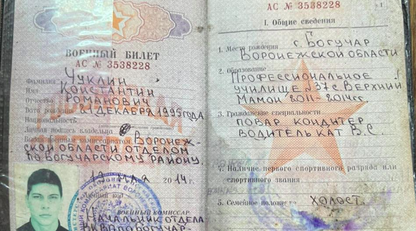 ВОЕННЫЙ БИЛЕТ
АС № 3538228
Фамилия ЧУКЛИН
Имя КОНСТАНТИН
Отчество РОМАНОВИЧ
21 ДЕКАБРЯ 1995 ГОДА
ВОРОНЕЖ-
СКОЙ ОБЛАСТИ ОТДЕЛОМ
ПО БОГУЧАРСКОМУ РАЙОНУ
2014 г.
ВОЕННЫЙ КОМИССАР
НАЧАЛЬНИК ОТДЕЛА
АС № 3538228
I. Общие сведения
1. Место рождения г. БОГУЧАР
ВОРОНЕЖСКОЙ ОБЛАСТИ
2. Образование
ПРОФЕССИОНАЛЬНОЕ
УЧИЛИЩЕ №37 с. ВЕРХНИЙ
МАМОН 2011-2014гг.
3. Гражданские специальности
ПОВАР, КОНДИТЕР,
ВОДИТЕЛЬ КАТ. В, С.
4. Наличие первого спортивного разряда или
спортивного звания
5. Семейное положение ХОЛОСТ.